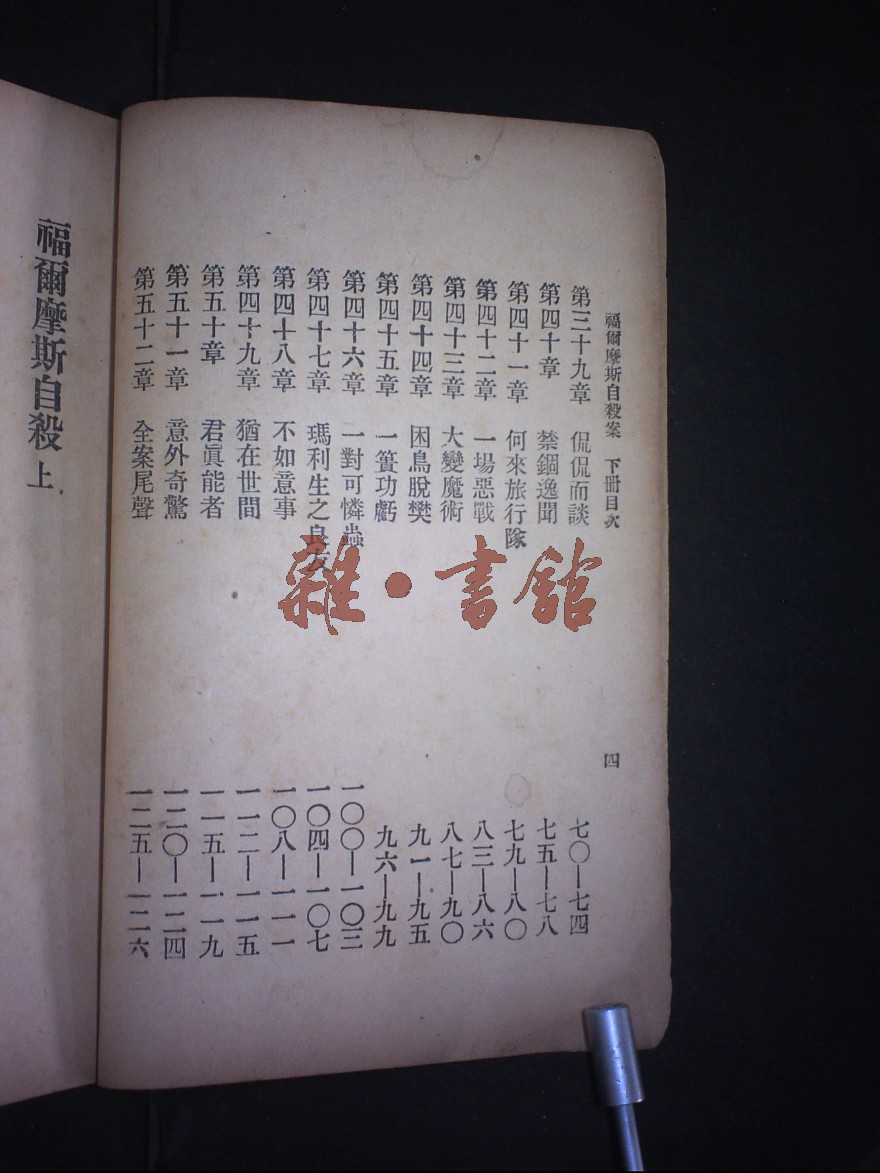 福爾摩斯自殺案 下冊目次
四
第三十九章 侃侃而談 七〇—七四
第四十章 禁錮逸聞 七五—七八
第四十一章 何來旅行隊 七九—八〇
第四十二章 一場惡戰 八三—八六
第四十三章 大變魔術 八七—九〇
第四十四章 困鳥脫樊 九一—九五
第四十五章 一簣功虧 九六—九九
第四十六章 一對可憐蟲 一〇〇—一〇三
第四十七章 瑪利生之良友 一〇四—一〇七
第四十八章 不如意事 一〇八—一一一
第四十九章 猶在世間 一一二—一一五
第五十章 君眞能者 一一五—一一九
第五十一章 意外奇驚 一二〇—一二四
第五十二章 全案尾聲 一二五—一二六
福爾摩斯自殺 上
雜·書館